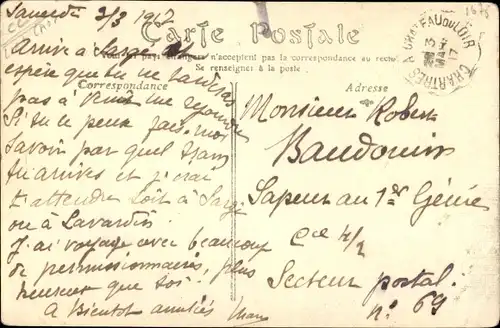 Samedi 3/3 1917
Carte Postale
Tous les pays étrangers n'acceptent pas la correspondance au recto
Se renseigner à la poste.
Correspondance
Adresse
CHARTRES A CHATEAU DU LOIR
Arrivé à Sargé et
espère que tu ne tarderas
pas à venir me rejoindre
Si tu le peux fais-moi
savoir par quel train
tu arrives et j'irai
t'attendre soit à Sargé
ou à Lavardin
J'ai voyagé avec beaucoup
de permissionnaires, plus
heureux que toi.
A Bientôt amitiés
Monsieur Robert
Baudouin
Sapeur au 1er Génie
Cie 4/2
Secteur postal
n° 69